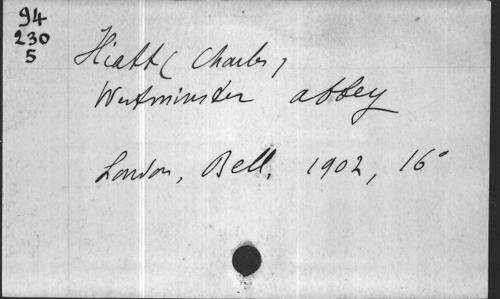 94
230
5
Hiatt (Charles)
Westminster abbey
London, Bell, 1902, 16°